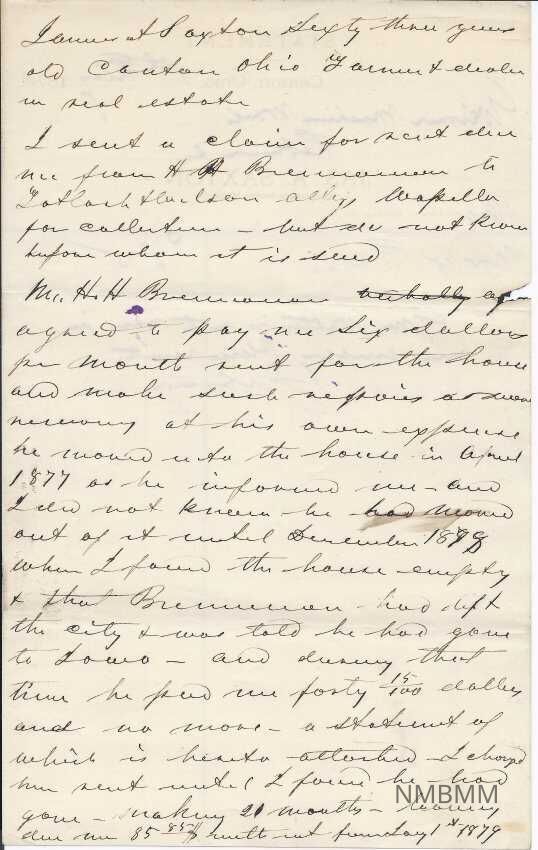 James A Saxton Sixty three years
old Canton Ohio Farmer & dealer
in real estate
I sent a claim for rent due
me from H H Brenneman to
Hudson attys Wapello
for collection - but do not know
before whom it is sued
Mr. H H Brenneman verbally agre
agreed to pay me Six dollars
per month rent for the house
and make such repairs as were
necessary at his own expense
he moved into the house in April
1877 as he informed me - and
I did not know he had moved
out of it until December 1878
when I found the house empty
& that Brenneman had left
the city & was told he had gone
to Iowa - and during that
time he paid me forty 15/100 dollars
and no more - a statement of
which is hereto attached - I charged
him rent until I found he had
gone - making 21 months - leaving
due me 85 85/100 with int from Jany 1st 1879
NMBMM